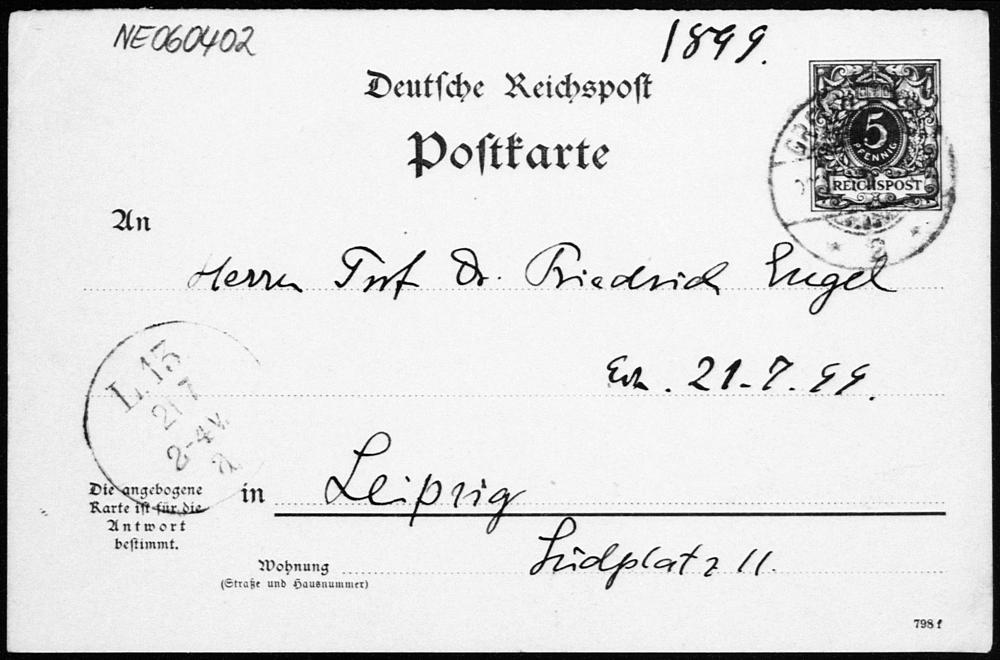 NE060402
1899.
Deutsche Reichspost
Postkarte
5
PFENNIG
REICHSPOST
An
Herrn Prof Dr. Friedrich Engel
Erh. 21.7.99.
L.13
21 7
2-4 V.
a
Die angebogene
Karte ist für die
Antwort
bestimmt.
in Leipzig
Wohnung Südplatz 11.
(Straße und Hausnummer)
798 f